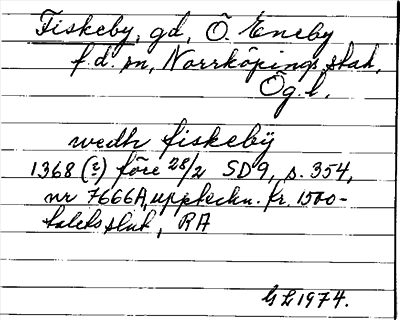 Fiskeby, gd, Ö. Eneby
f.d. sn, Norrköpings stad,
Ög. l.
wedh fiskebÿ
1368 (s) före 28/2 SD 9, s. 354,
nr 7666A, uppteckn. fr. 1500-
talets slut, RA
GL 1974.